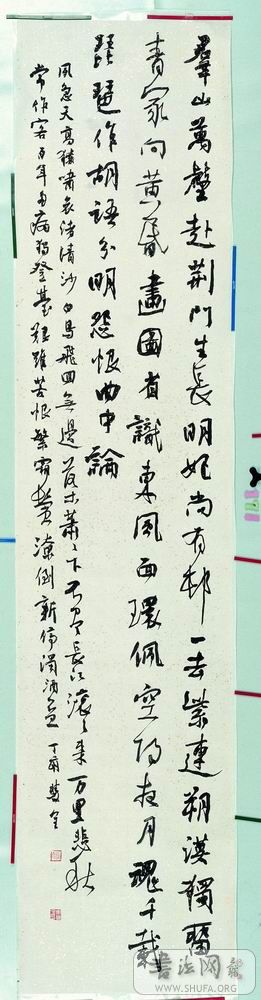 羣山萬壑赴荆門生長明妃尚有邨一去紫連朔漠獨留
青冢向黃昏畫圖省識東風面環佩空歸夜月魂千載
琵琶作胡語分明怨恨曲中論
風急天高猿嘯哀渚清沙白鳥飛回無邊落木蕭々下不盡長江滾々來万里悲秋
常作客百年多病獨登臺艱難苦恨繁霜鬢潦倒新停濁酒盃 丁亥
書法网
WWW.SHUFA.ORG